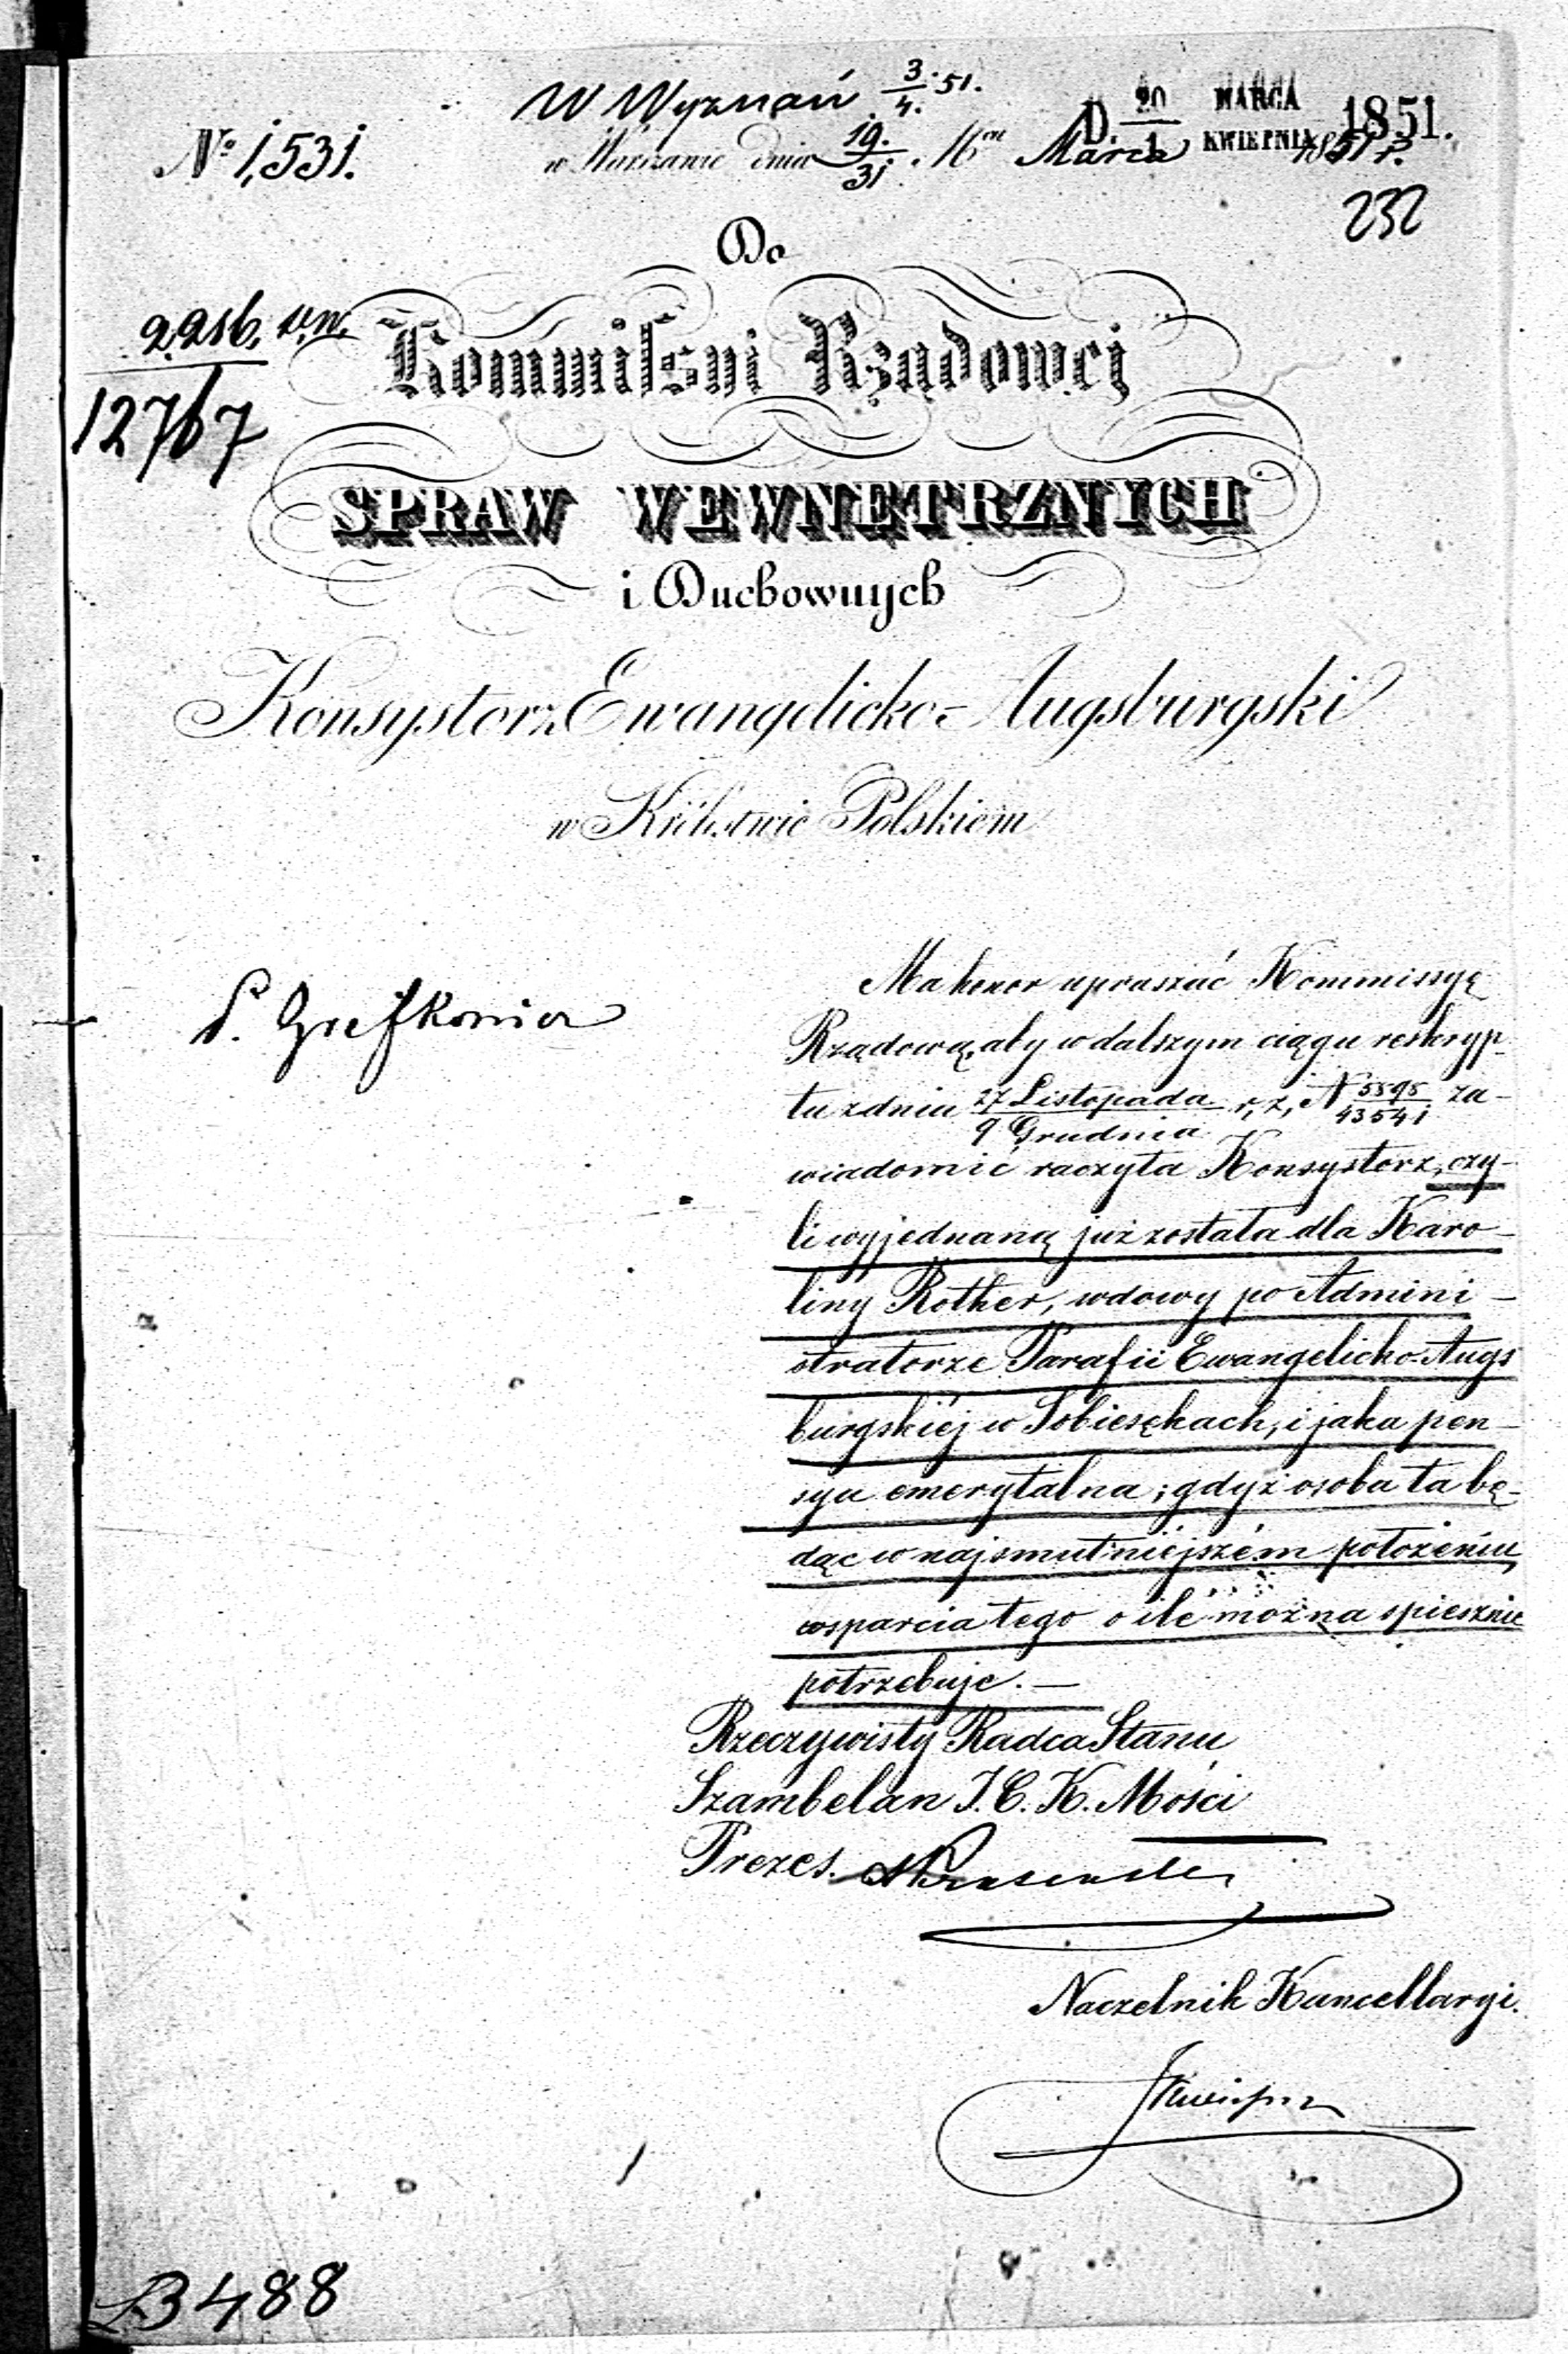 W Wyznań 3/4. 51.
D. 20 MARCA / 1 KWIETNIA 1851.
№ 1,531.
w Warszawie dnia 19./31. Mca Marca 1851 r.
232
Do
2216.
12767
Kommissyi Rządowej
SPRAW WEWNĘTRZNYCH
i Duchownych
Konsystorz Ewangelicko-Augsburgski
w Królestwie Polskiem
Ma honor upraszać Kommissyę
Rządową, aby w dalszym ciągu reskryp-
tu z dnia 27 Listopada / 9 Grudnia r, z, N 5595/43541 za-
wiadomić raczyła Konsystorz, czy-
li wyjednaną już została dla Karo-
liny Rother, wdowy po Admini-
stratorze Parafii Ewangelicko-Augs
burgskiéj w Sobiesękach, i jaka pen-
sya emerytalna; gdyż osoba ta bę-
dąc w najsmutniejszém położeniu,
wsparcia tego o ile można spiesznie
potrzebuje. —
Rzeczywisty Radca Stanu
Szambelan J. C. K. Mości
Prezes.
Naczelnik Kancellaryi.
B 488